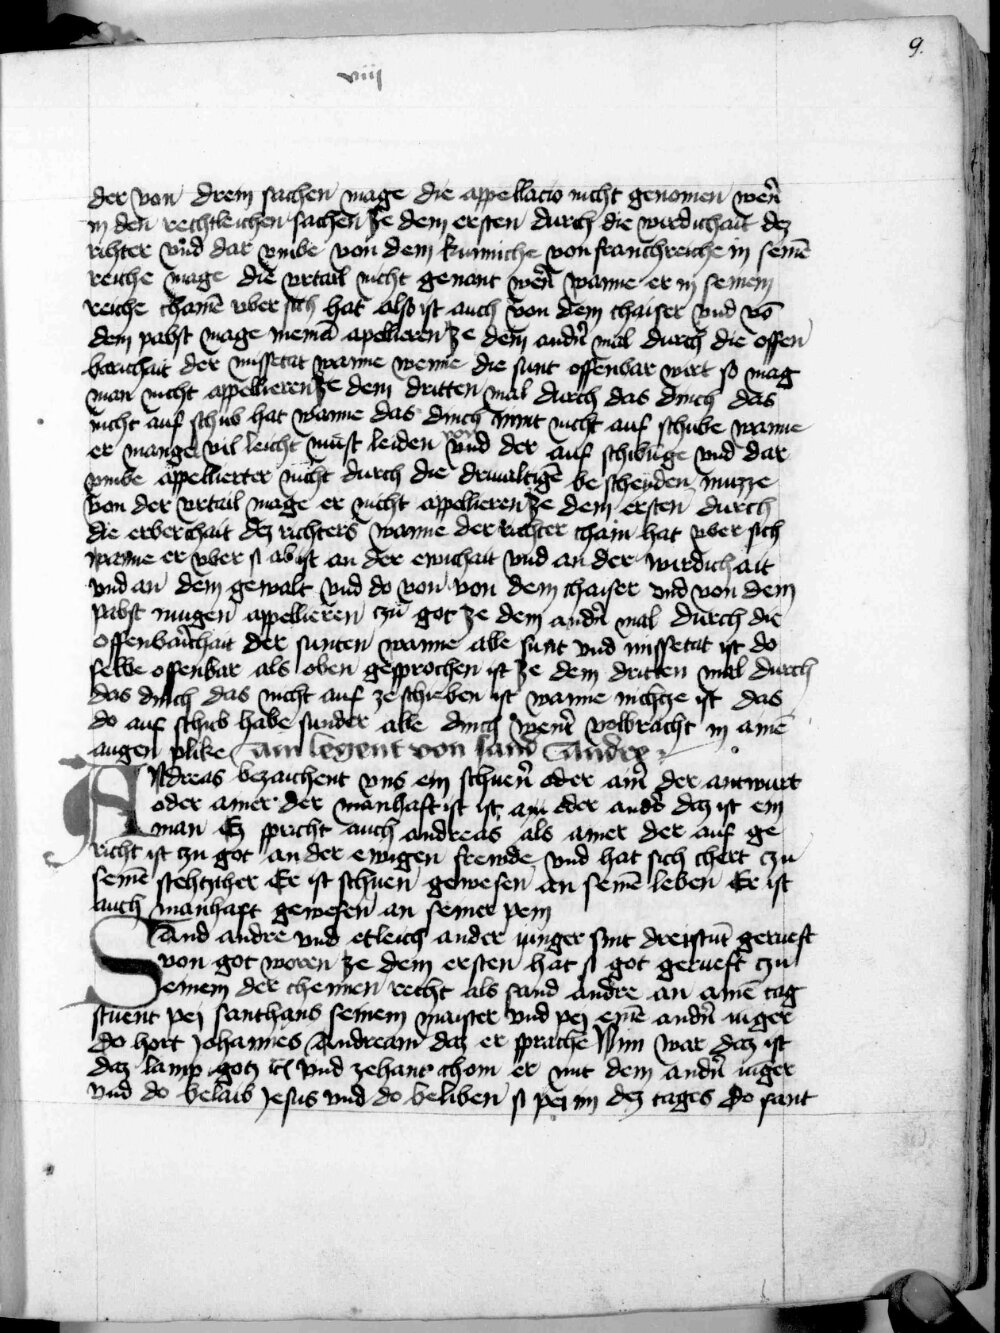 9.
viiij
der von drein sachen mage die appellacio nicht genomen wern̄
in den rechtleichen sachen ze dem ersten durch die wirdichait dez
richter vnd dar vmbe von dem kunniche von franchreiche in seinē
reiche mage die vrtail nicht genant wern̄ wanne er in seinem
reiche chainē vber sich hat also ist auch von dem chaiser vnd vō
dem pabst mage niemā apellieren ze dem andn̄ mal durch die offen
barichait der missetat wanne wenne die sunt offenbar wirt so mag
man nicht appellieren ze dem dritten mal durch das dinch das
nicht auf schub hat wanne das dinch nimt nicht auf schube wanne
er mangel vil leicht müst leiden von der auf schibūge vnd dar
vmbe appellierter nicht durch die driualtigē be scheiden muzze
von der vrtail mage er nicht appellieren ze dem ersten durch
die erberchait dez richters wanne der richter chain hat vber sich
wanne er vber si ab ist an der ewichait vnd an der wirdichait
vnd an dem gewalt vnd do von von dem chaiser vnd von dem
pabst mugen appellieren czu got ze dem andn̄ mal durch die
offenbar̄chait der sunten wanne alle sunt vnd missetat ist do
selbe offenbar als oben gesprochen ist ze dem dritten mal durch
das dinch das nicht auf ze schieben ist wanne nichtze ist das
do auf schub habe sunder alle dinch wern̄t volbracht in ainē
augen plike Ain legent von sand Andre
ANdreas bezaichent vns ein schuen̄ oder ain̄ der antwurt
oder ainer der manhaft ist ist ain oder andr̄ daz ist ein
man Ez spricht auch andreas als ainer der auf ge
richt ist czu got an der ewigen frewde vnd hat sich chert czu
seinē stehtziher Er ist schuen gewesen an seinē leben Er ist
auch manhaft gewesen an seiner pein
SAnd andre vnd etleich ander iunger sint dreistūt gerueft
von got woren ze dem ersten hat si got gerueft czu
seinem der chennen recht als sand andre an ainē tag
stuent pei santhans seinem maister vnd pei einē andn̄ iūger
do hort Johannes Andream daz er sprache Nim war daz ist
daz lamp gotz ict̄ vnd zehant chom er mit dem andn̄ iūger
vnd do belaib Jesus vnd do beliben si pei im dez tages Do sant